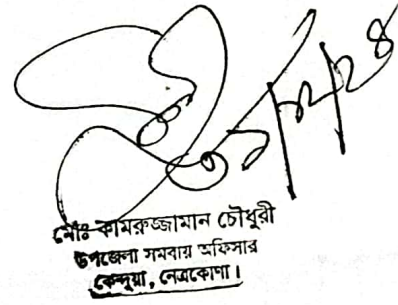 মোঃ কামরুজ্জামান চৌধুরী
উপজেলা সমবায় অফিসার
কেন্দুয়া, নেত্রকোণা।